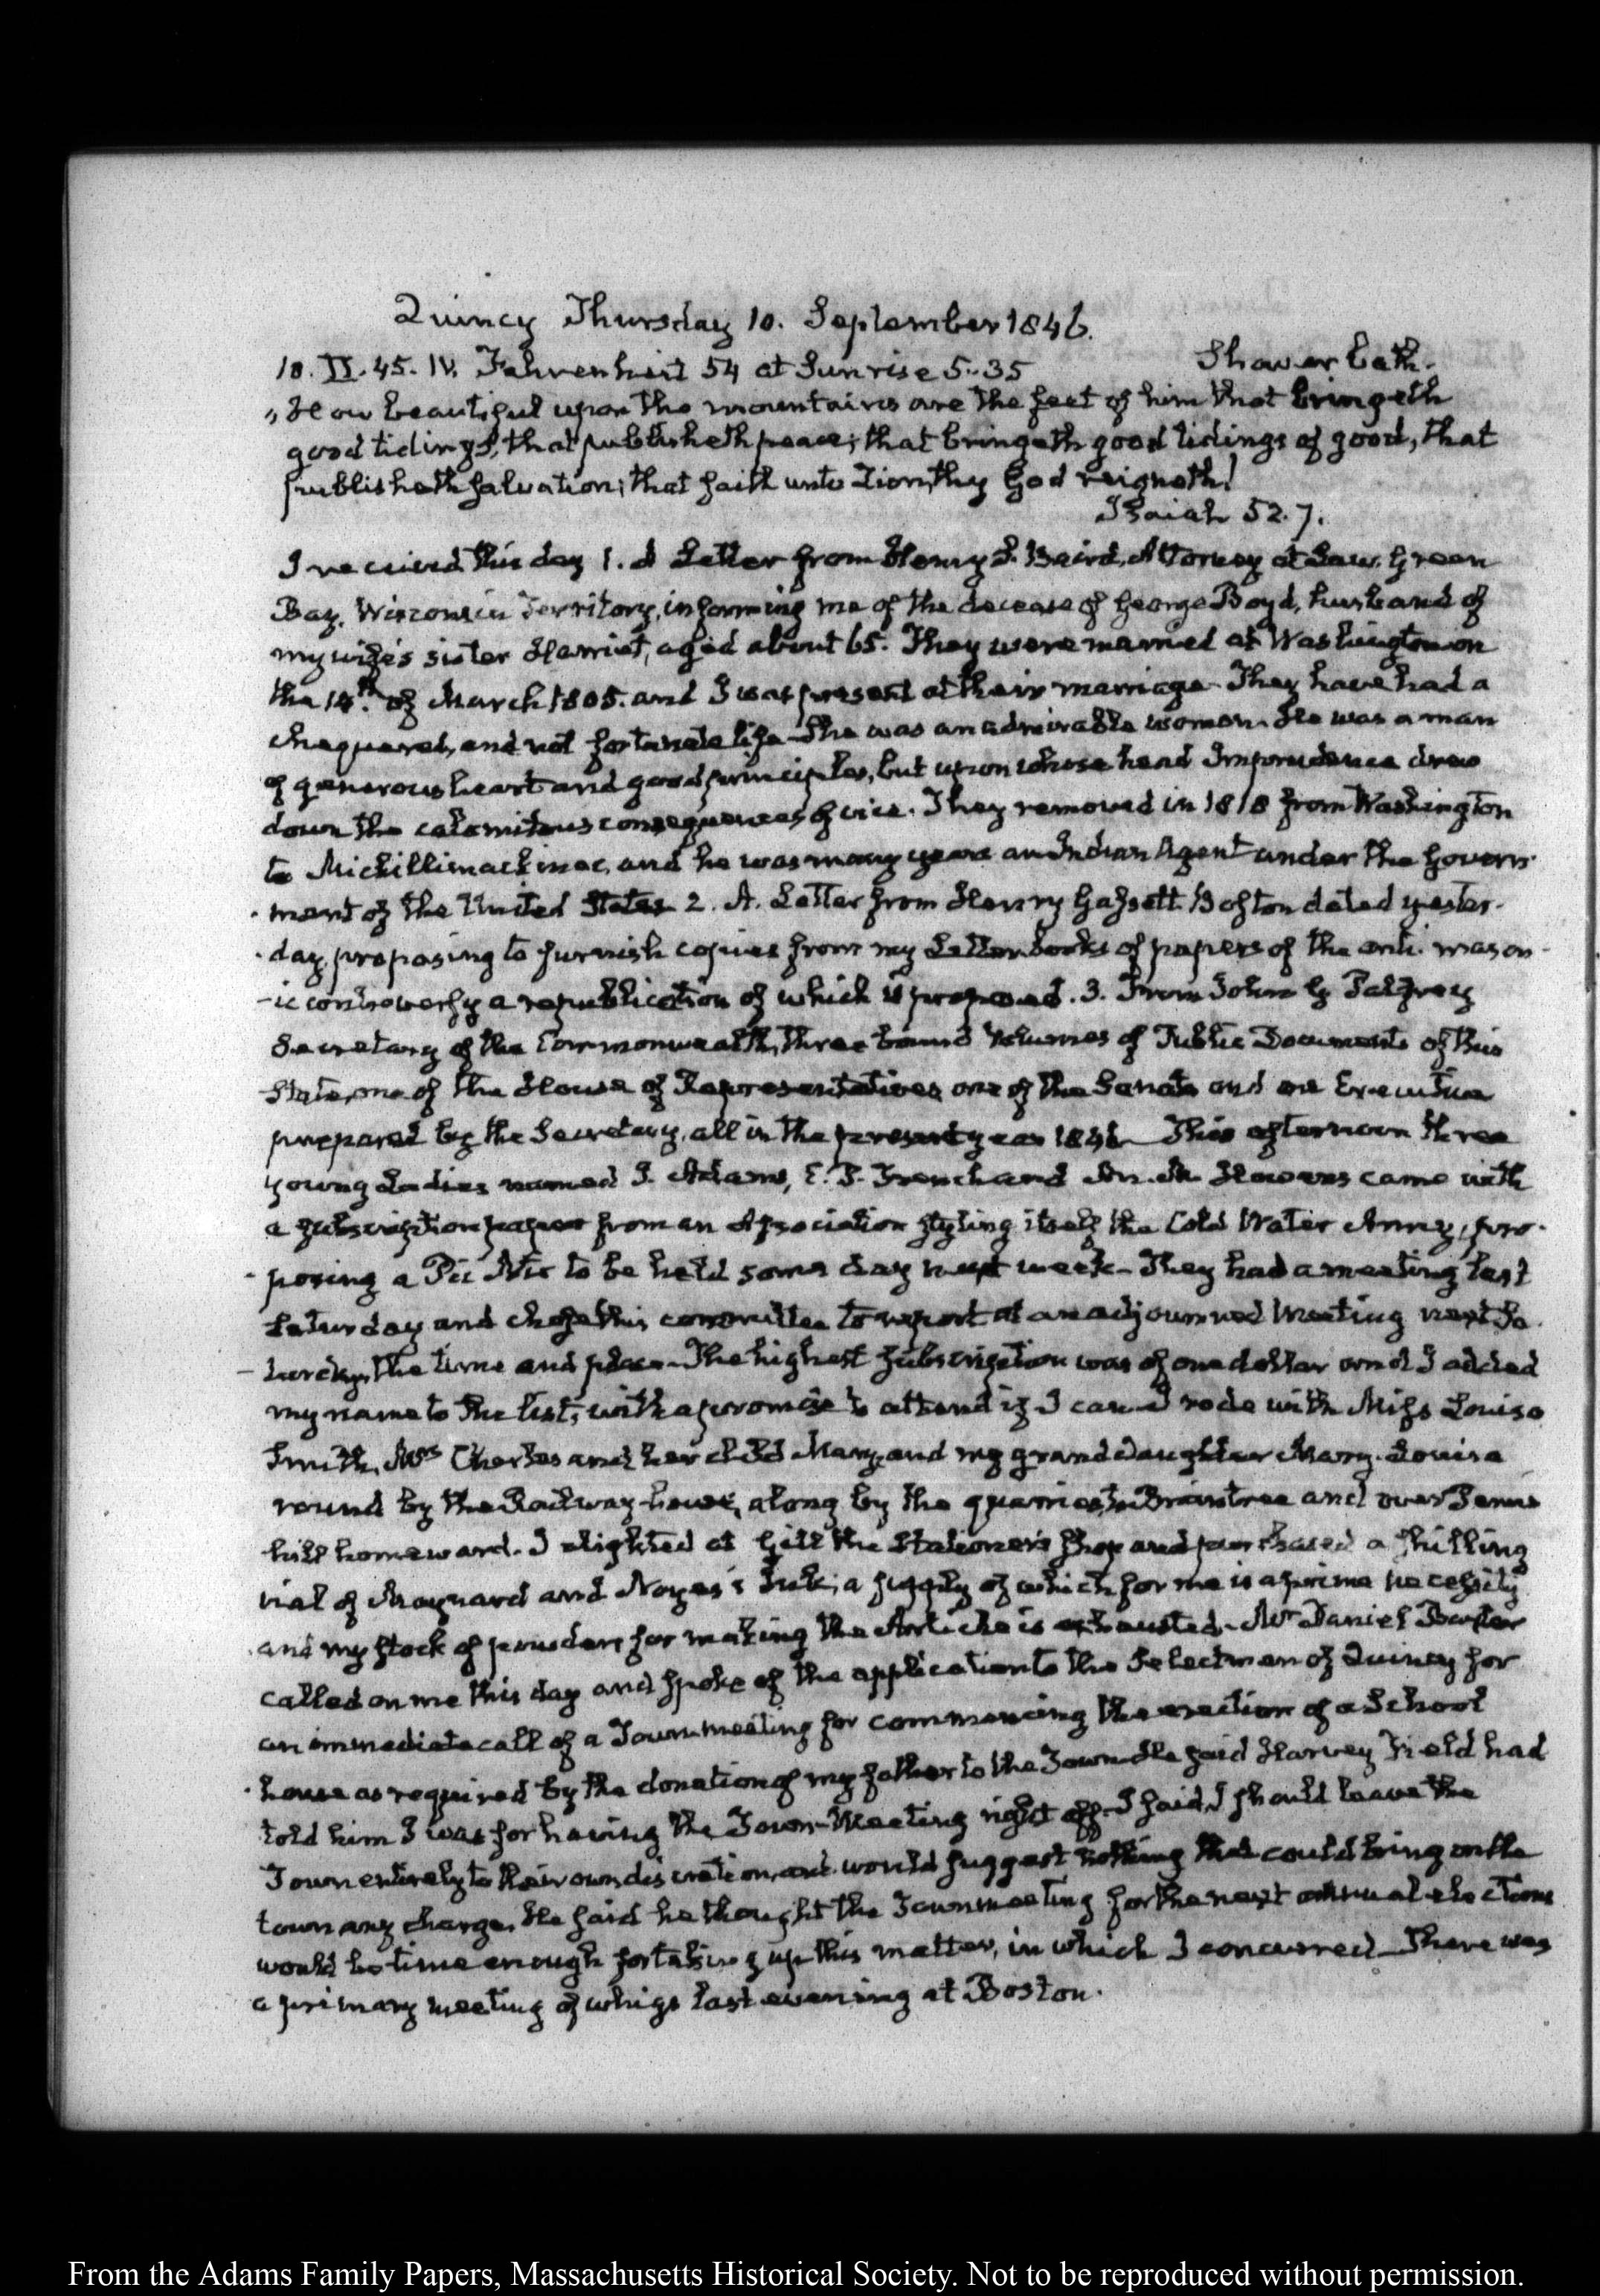 Quincy Thursday 10. September 1846.
10. II. 45. IV. Fahrenheit 54 at Sunrise 5. 35 Shower bath.
„How beautiful upon the mountains are the feet of him that bringeth
good tidings, that publisheth peace; that bringeth good tidings of good, that
publisheth salvation; that saith unto Zion, thy God reigneth!
Isaiah 52. 7.
I received this day 1. A Letter from Henry S. Baird, Attorney at Law, Green
Bay, Wisconsin Territory, informing me of the decease of George Boyd, husband of
my wife's sister Harriet, aged about 65. They were married at Washington on
the 14th. of March 1805. and I was present at their marriage. They have had a
chequered, and not fortunate life. She was an admirable woman. He was a man
of generous heart and good principles, but upon whose head Imprudence drew
down the calamitous consequences of vice. They removed in 1818 from Washington
to Michillimackinac, and he was many years an Indian Agent under the Govern-
-ment of the United States 2. A. Letter from Henry Gassett. Boston dated yester-
-day, proposing to furnish copies from my Letter books of papers of the anti-mason-
-ic controversy a republication of which is proposed. 3. From John G. Palfrey
Secretary of the Commonwealth, three bound Volumes of Public Documents of this
State, one of the House of Representatives one of the Senate and one Executive
prepared by the Secretary, all in the present year 1846. This afternoon three
young Ladies named J. Adams, E. P. French and came with
a subscription paper from an Association styling itself the Cold Water Army, pro-
-posing a Pic Nic to be held some day next week. They had a meeting last
Saturday and chose this committee to report at an adjourned Meeting next Sa-
-turday, the time and place. The highest subscription was of one dollar and I added
my name to the list, with a promise to attend if I can. I rode with Miss Louisa
Smith, Mrs Charles and her child Mary, and my grand daughter Mary-Louisa
round by the Railway-house, along by the quarries, to Braintree and over Penns
hill homeward. I alighted at Gill the Stationer's Shop and purchased a shilling
vial of Maynard and Noyes's Ink; a supply of which for me is a prime necessity
and my stock of powders for making the Article is exhausted. Mr Daniel Baxter
called on me this day and spoke of the application to the Selectmen of Quincy for
an immediate call of a Town-meeting for commencing the erection of a School
house as required by the donation of my father to the Town. He said Harvey Field had
told him I was for having the Town-Meeting right off. I said, I should leave the
Town entirely to their own discretion, and would suggest nothing that could bring on the
town any charge. He said he thought the Town meeting for the next annual elections
would be time enough for taking up this matter, in which I concurred. There was
a primary meeting of whigs last evening at Boston.
From the Adams Family Papers, Massachusetts Historical Society. Not to be reproduced without permission.